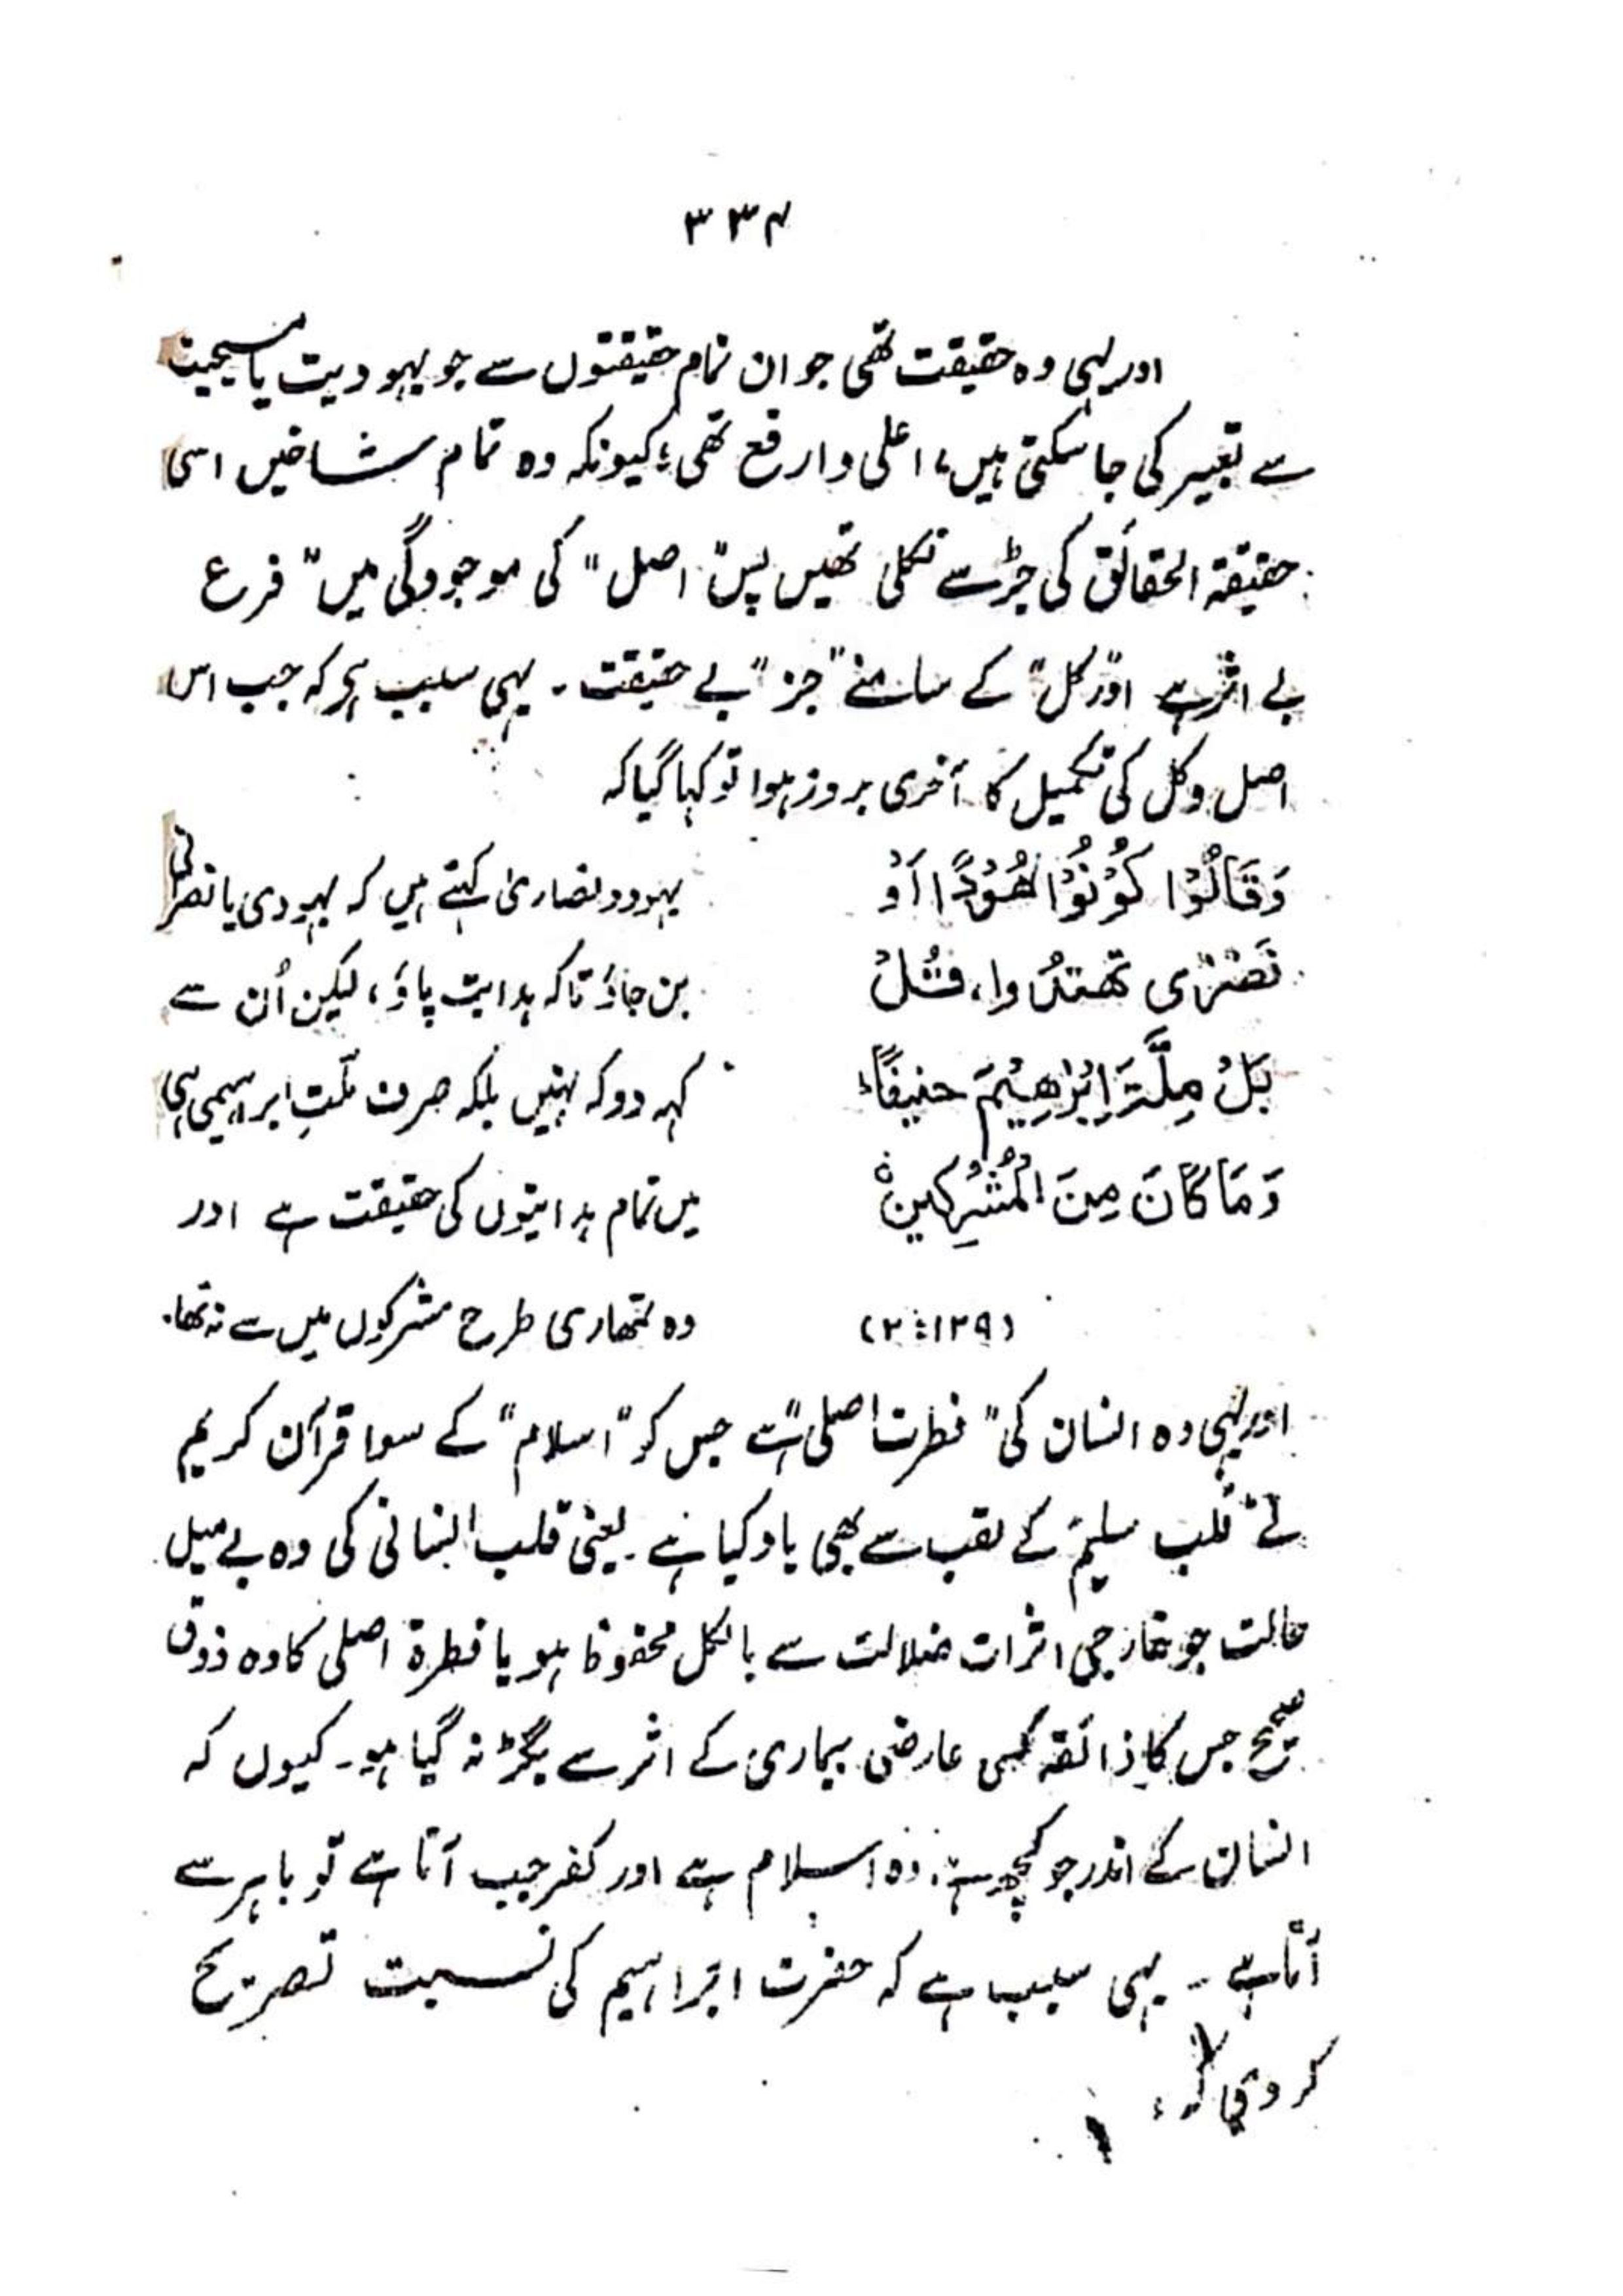 ۳۳۴
اور یہی وہ حقیقت تھی جو ان تمام حقیقتوں سے جو یہودیت یا مسیحیت
سے تعبیر کی جا سکتی ہیں، اعلی و ارفع تھی؛ کیونکہ وہ تمام شاخیں اسی
حقیقۃ الحقائق کی جڑ سے نکلی تھیں پس "اصل" کی موجودگی میں "فرع
بے اثر ہے اور "کل" کے سامنے "جز" بے حقیقت۔ یہی سبب ہے کہ جب اس
اصل و کل کی تکمیل کا آخری بروز ہوا تو کہا گیا کہ
وَقَالُوْا كُوْنُوْا هُوْدًا اَوْ
نَصٰرٰى تهتدُوا، قُلْ
بَلْ مِلَّةَ اِبْرٰهِيْمَ حنيفًا،
وَمَا كَانَ مِنَ الْمُشْرِكِين ہ
(۲:۱۲۹)
یہود و نصاریٰ کہتے ہیں کہ یہودی یا نصرانی
بن جاؤ تاکہ ہدایت پاؤ، لیکن اُن سے
کہہ دو کہ نہیں بلکہ صرف ملّتِ ابراہیمی ہی
میں تمام ہدایتوں کی حقیقت ہے اور
وہ تمھاری طرح مشرکوں میں سے نہ تھا۔
اور یہی وہ انسان کی "فطرت اصلی" ہے جس کو "اسلام" کے سوا قرآن کریم
نے "قلب سلیم" کے لقب سے بھی یاد کیا ہے۔ یعنی قلب انسانی کی وہ بے میل
حالت جو خارجی اثرات ضلالت سے بالکل محفوظ ہو یا فطرۃ اصلی کا وہ ذوق
صحیح جس کا ذائقہ کسی عارضی بیماری کے اثر سے بگڑ نہ گیا ہو۔ کیوں کہ
انسان کے اندر جو کچھ ہے، وہ اسلام ہے اور کفر جب آتا ہے تو باہر سے
آتا ہے ۔ یہی سبب ہے کہ حضرت ابراہیم کی نسبت تصریح
کر دی کہ،